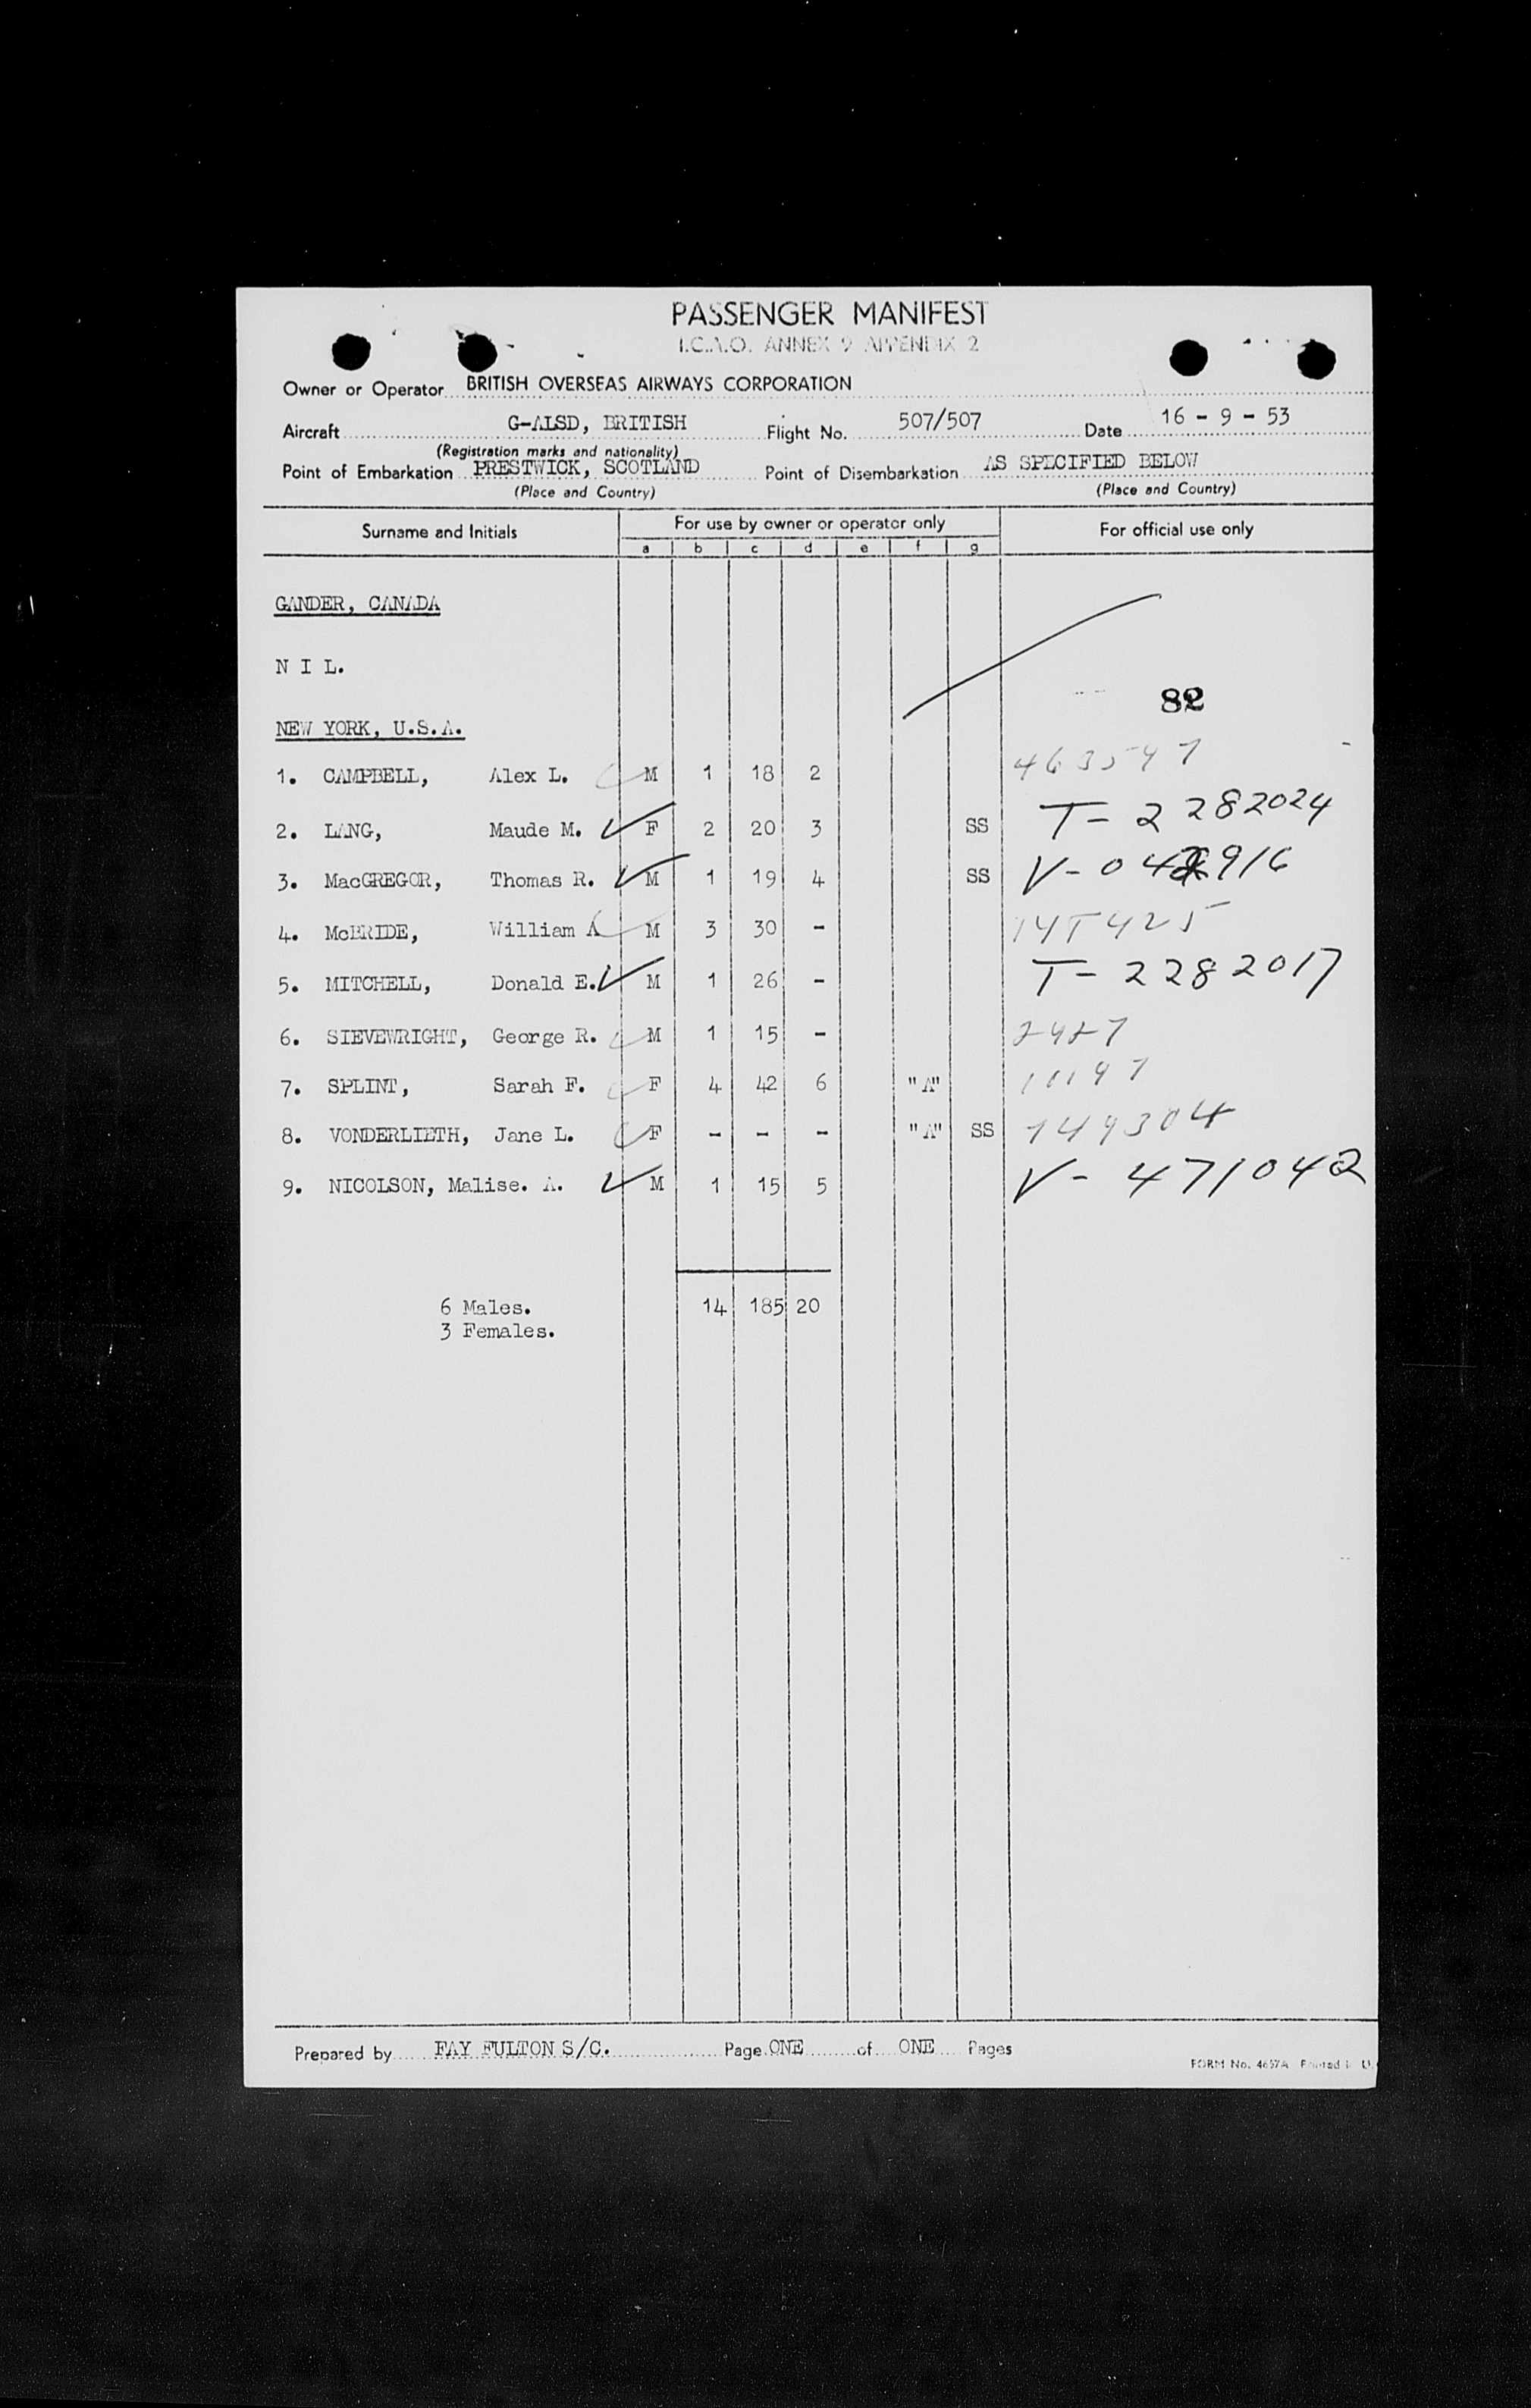 PASSENGER MANIFEST
I.C.A.O. ANNEX 9 APPENDIX 2
Owner or Operator BRITISH OVERSEAS AIRWAYS CORPORATION
Aircraft G-ALSD, BRITISH Flight No. 507/507 Date 16 - 9 - 53
(Registration marks and nationality)
Point of Embarkation PRESTWICK, SCOTLAND Point of Disembarkation AS SPECIFIED BELOW
(Place and Country) (Place and Country)
Surname and Initials For use by owner or operator only For official use only
a b c d e f g
GANDER, CANADA
N I L.
82
NEW YORK, U.S.A.
1. CAMPBELL, Alex L. M 1 18 2 463547
2. LANG, Maude M. F 2 20 3 SS T- 2282024
3. MacGREGOR, Thomas R. M 1 19 4 SS
4. McBRIDE, William A M 3 30 -
5. MITCHELL, Donald E. M 1 26 - T- 2282017
6. SIEVEWRIGHT, George R. M 1 15 -
7. SPLINT, Sarah F. F 4 42 6 "A"
8. VONDERLIETH, Jane L. F - - - "A" SS 149304
9. NICOLSON, Malise. A. M 1 15 5 V- 471042
6 Males. 14 185 20
3 Females.
Prepared by FAY FULTON S/C. Page ONE of ONE Pages
FORM No. 4657A Printed